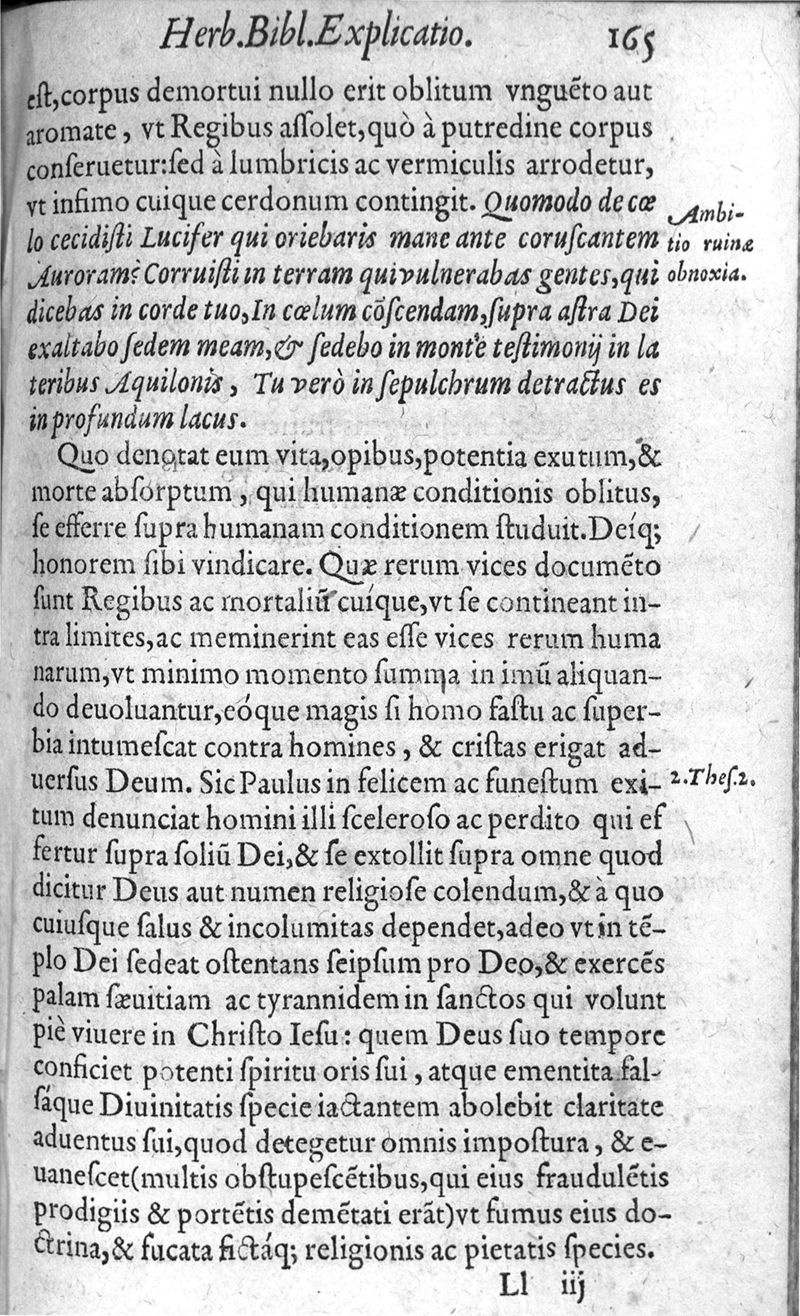 Herb.Bibl.Explicatio. 165
eſt,corpus demortui nullo erit oblitum vnguẽto aut
aromate, vt Regibus aſſolet,quò à putredine corpus
conſeruetur:ſed à lumbricis ac vermiculis arrodetur,
vt infimo cuique cerdonum contingit. Quomodo de cœ
lo cecidiſti Lucifer qui oriebaris mane ante coruſcantem
Auroram? Corruiſti in terram qui vulnerabas gentes,qui
dicebas in corde tuo,In cœlum cõſcendam,ſupra aſtra Dei
exaltabo ſedem meam,& ſedebo in monte teſtimonij in la
teribus Aquilonis, Tu verò in ſepulchrum detractus es
in profundum lacus.
Ambi-
tio ruinæ
obnoxia.
Quo denotat eum vita,opibus,potentia exutum,&
morte abſorptum, qui humanæ conditionis oblitus,
ſe efferre ſupra humanam conditionem ſtuduit.Deíq;
honorem ſibi vindicare. Quæ rerum vices documẽto
ſunt Regibus ac mortaliũ cuíque,vt ſe contineant in-
tra limites,ac meminerint eas eſſe vices rerum huma
narum,vt minimo momento ſumma in imũ aliquan-
do deuoluantur,eóque magis ſi homo faſtu ac ſuper-
bia intumeſcat contra homines, & criſtas erigat ad-
uerſus Deum. Sic Paulus in felicem ac funeſtum exi-
2.Theſ.2.
tum denunciat homini illi ſceleroſo ac perdito qui ef
fertur ſupra ſoliũ Dei,& ſe extollit ſupra omne quod
dicitur Deus aut numen religioſe colendum,& à quo
cuiuſque ſalus & incolumitas dependet,adeo vt in tẽ-
plo Dei ſedeat oſtentans ſeipſum pro Deo,& exercẽs
palam ſæuitiam ac tyrannidem in ſanctos qui volunt
piè viuere in Chriſto Ieſu: quem Deus ſuo tempore
conficiet potenti ſpiritu oris ſui, atque ementita fal-
ſáque Diuinitatis ſpecie iactantem abolebit claritate
aduentus ſui,quod detegetur omnis impoſtura, & e-
uaneſcet(multis obſtupeſcẽtibus,qui eius fraudulẽtis
prodigiis & portẽtis demẽtati erãt)vt fumus eius do-
ctrina,& fucata fictáq; religionis ac pietatis ſpecies.
Ll iij